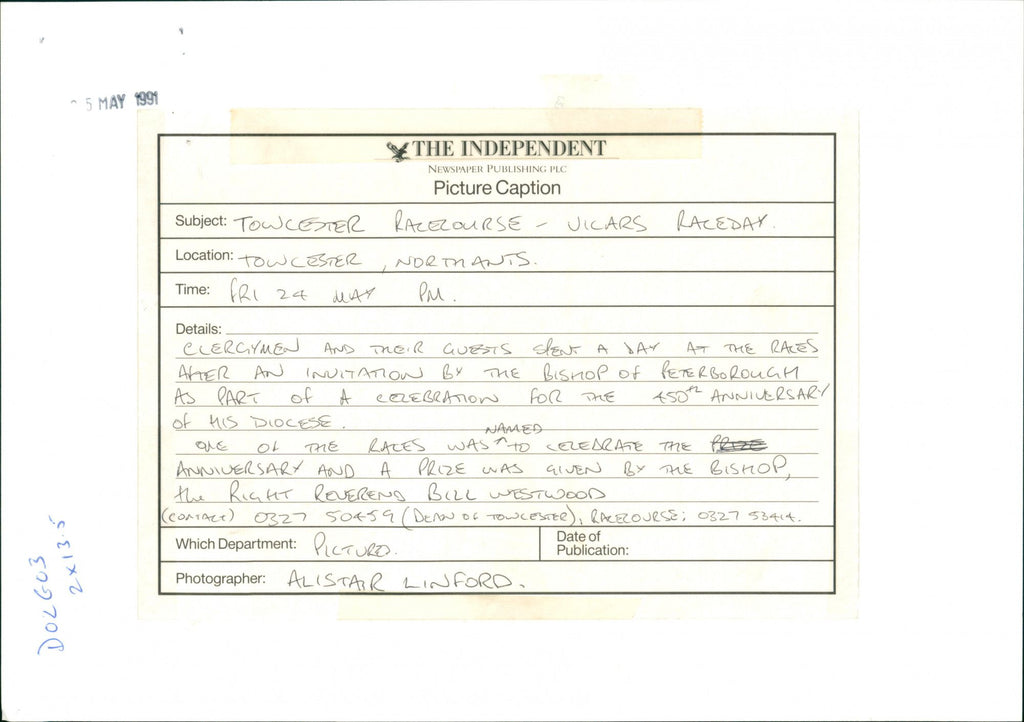 5 MAY 1991
THE INDEPENDENT
NEWSPAPER PUBLISHING PLC
Picture Caption
Subject: TOWCESTER RACECOURSE - VICARS RACEDAY.
Location: TOWCESTER, NORTHANTS.
Time: FRI 24 MAY PM.
Details:
CLERGYMEN AND THEIR GUESTS SPENT A DAY AT THE RACES
AFTER AN INVITATION BY THE BISHOP OF PETERBOROUGH
AS PART OF A CELEBRATION FOR THE 450th ANNIVERSARY
OF HIS DIOCESE.
ONE OF THE RACES WAS NAMED TO CELEBRATE THE PRIZE
ANNIVERSARY AND A PRIZE WAS GIVEN BY THE BISHOP,
the RIGHT REVEREND BILL WESTWOOD
(CONTACT) 0327 50459 (DEAN OF TOWCESTER), RACECOURSE: 0327 53414.
Which Department: PICTURE.
Date of
Publication:
Photographer: ALISTAIR LINFORD.
2 x 13.5